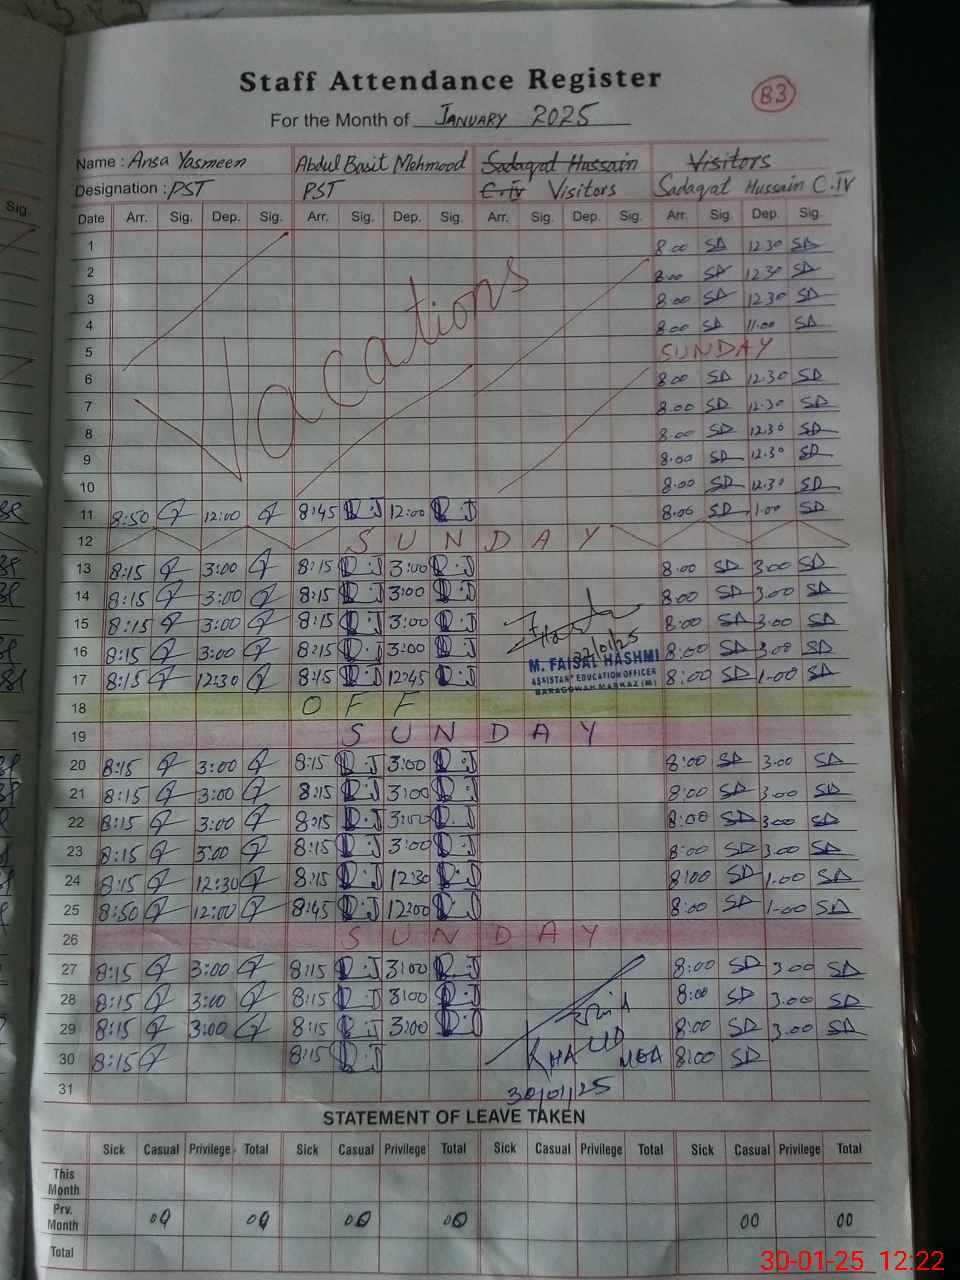 Staff Attendance Register
83
For the Month of JANUARY 2025
Name : Ansa Yasmeen Abdul Basit Mehmood Sadaqat Hussain Visitors
Designation : PST PST C.IV Visitors Sadaqat Hussain C.IV
Sig.
Date Arr. Sig. Dep. Sig. Arr. Sig. Dep. Sig. Arr. Sig. Dep. Sig. Arr. Sig Dep. Sig.
1 8.00 SD 12.30 SD
2 8.00 SD 12.30 SD
3 8.00 SD 12.30 SD
4 8.00 SD 11.00 SD
Vacations
5 SUNDAY
6 8.00 SD 12.30 SD
7 8.00 SD 12.30 SD
8 8.00 SD 12.30 SD
9 8.00 SD 12.30 SD
10 8.00 SD 12.30 SD
11 8:50 12:00 8:45 12:00 8.00 SD 1.00 SD
12 SUNDAY
13 8:15 3:00 8:15 3:00 8.00 SD 3.00 SD
14 8:15 3:00 8:15 3:00 8.00 SD 3.00 SD
15 8:15 3:00 8:15 3:00 8:00 SD 3.00 SD
16 8:15 3:00 8:15 3:00 8:00 SD 3.00 SD
M. FAISAL HASHMI
17 8:15 12:30 8:15 12:45 8:00 SD 1-00 SD
ASSISTANT EDUCATION OFFICER
BARAGOWAH MARKAZ (M)
18 OFF
19 SUNDAY
20 8:15 3:00 8:15 3:00 8:00 SD 3.00 SD
21 8:15 3:00 8:15 3:00 8:00 SD 3.00 SD
22 8:15 3:00 8:15 3:00 8:00 SD 3.00 SD
23 8:15 3:00 8:15 3:00 8:00 SD 3.00 SD
24 8:15 12:30 8:15 12:30 8:00 SD 1.00 SD
25 8:50 12:00 8:45 12:00 8:00 SD 1-00 SD
26 SUNDAY
27 8:15 3:00 8:15 3:00 8:00 SD 3.00 SD
28 8:15 3:00 8:15 3:00 8:00 SD 3.00 SD
29 8:15 3:00 8:15 3:00 8:00 SD 3.00 SD
30 8:15 8:15 KHALID MEA 8:00 SD
31 30/01/25
STATEMENT OF LEAVE TAKEN
Sick Casual Privilege Total Sick Casual Privilege Total Sick Casual Privilege Total Sick Casual Privilege Total
This Month
Prv. Month 00 00 00 00 00 00
Total
30-01-25 12:22